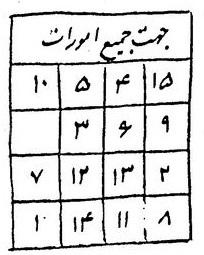 جهت جمیع امورات
۱۵ ۴ ۵ ۱۰
۹ ۶ ۳
۲ ۱۳ ۱۲ ۷
۸ ۱۱ ۱۴ ۱